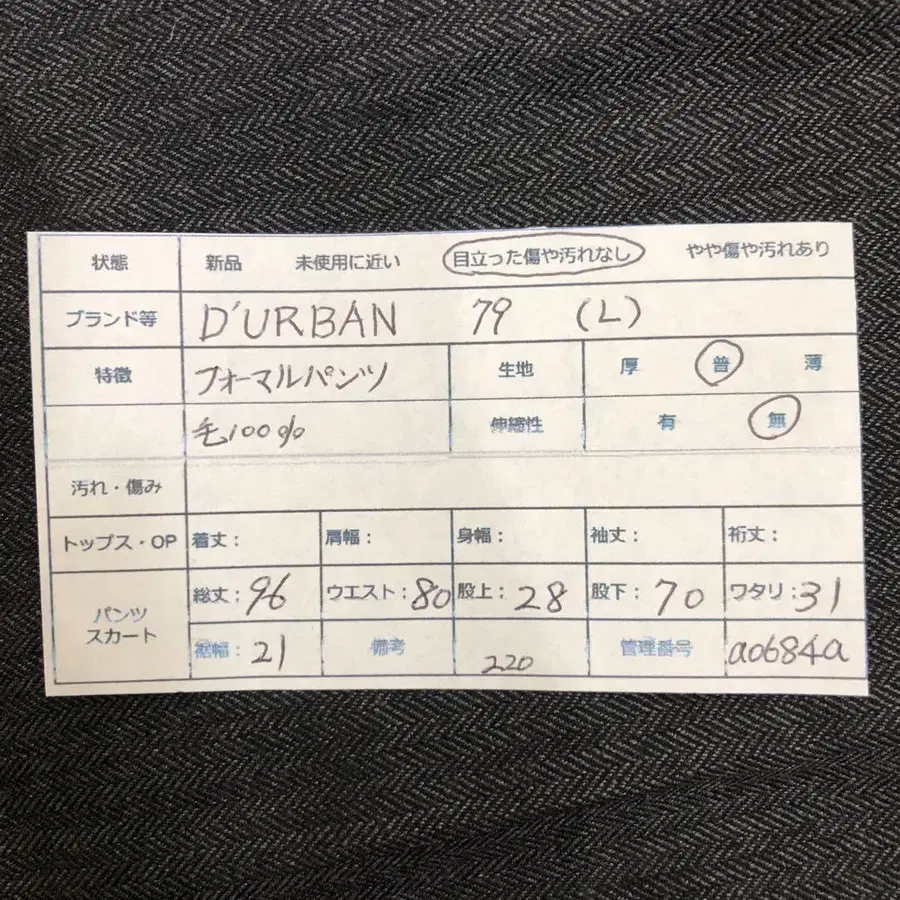 状態 新品 未使用に近い 目立った傷や汚れなし やや傷や汚れあり
ブランド等 D'URBAN 79 (L)
特徴 フォーマルパンツ 生地 厚 普 薄
毛100% 伸縮性 有 無
汚れ・傷み
トップス・OP 着丈: 肩幅: 身幅: 袖丈: 裄丈:
パンツ スカート 総丈:96 ウエスト:80 股上:28 股下:70 ワタリ:31
裾幅:21 備考 220 管理番号 a0684a